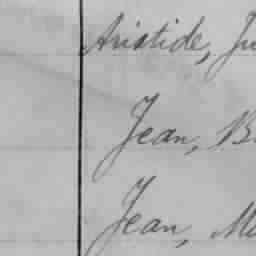 Aristide, Ju
Jean, B
Jean, Ma